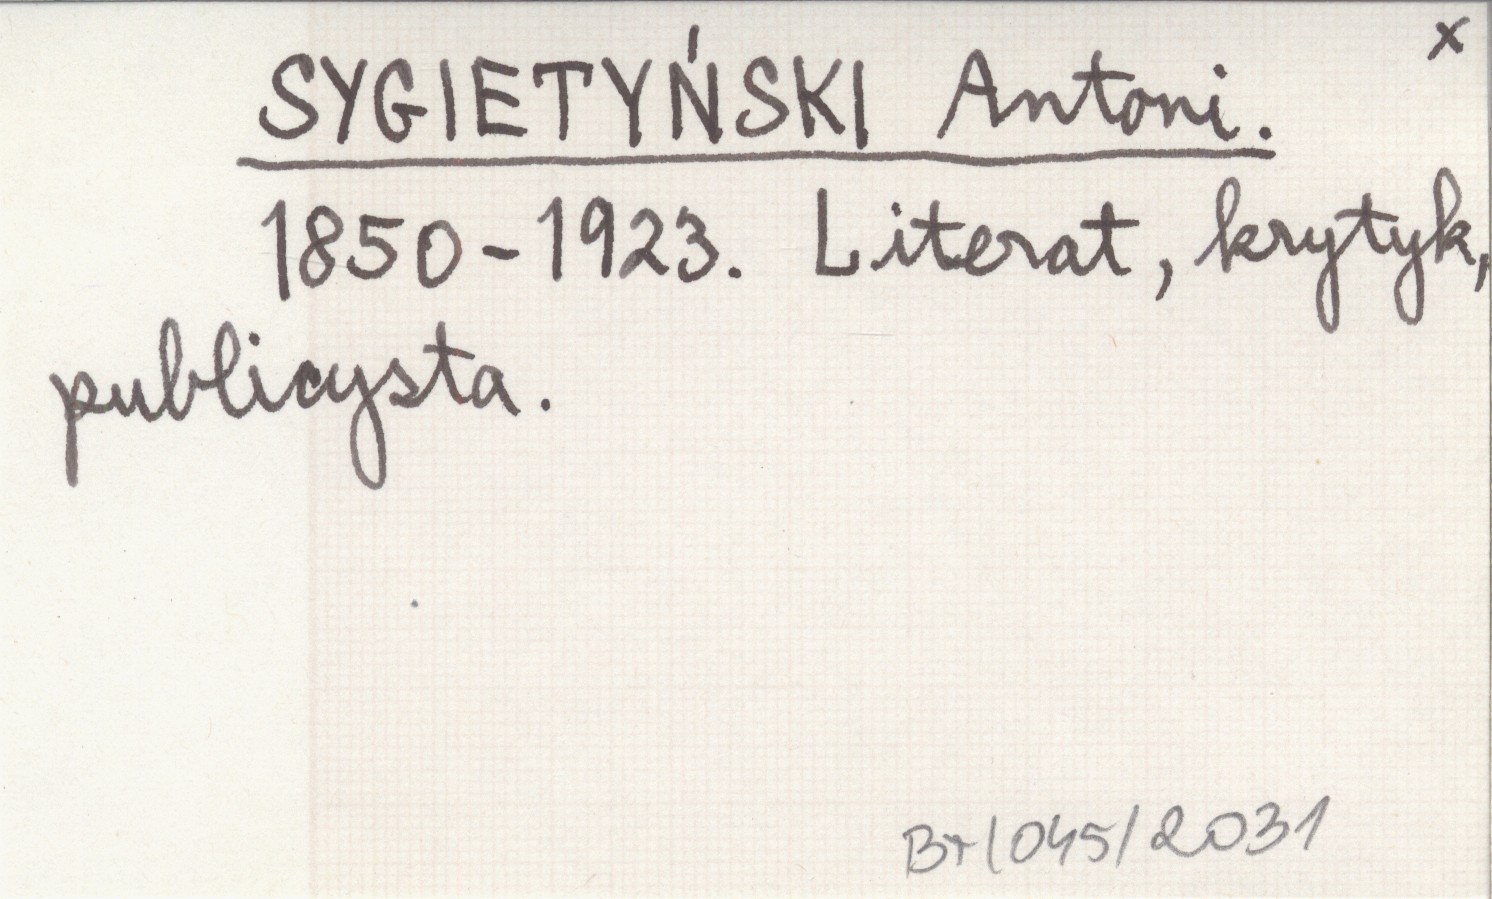 x
SYGIETYŃSKI Antoni.
1850-1923. Literat, krytyk,
publicysta.
Br/045/2031